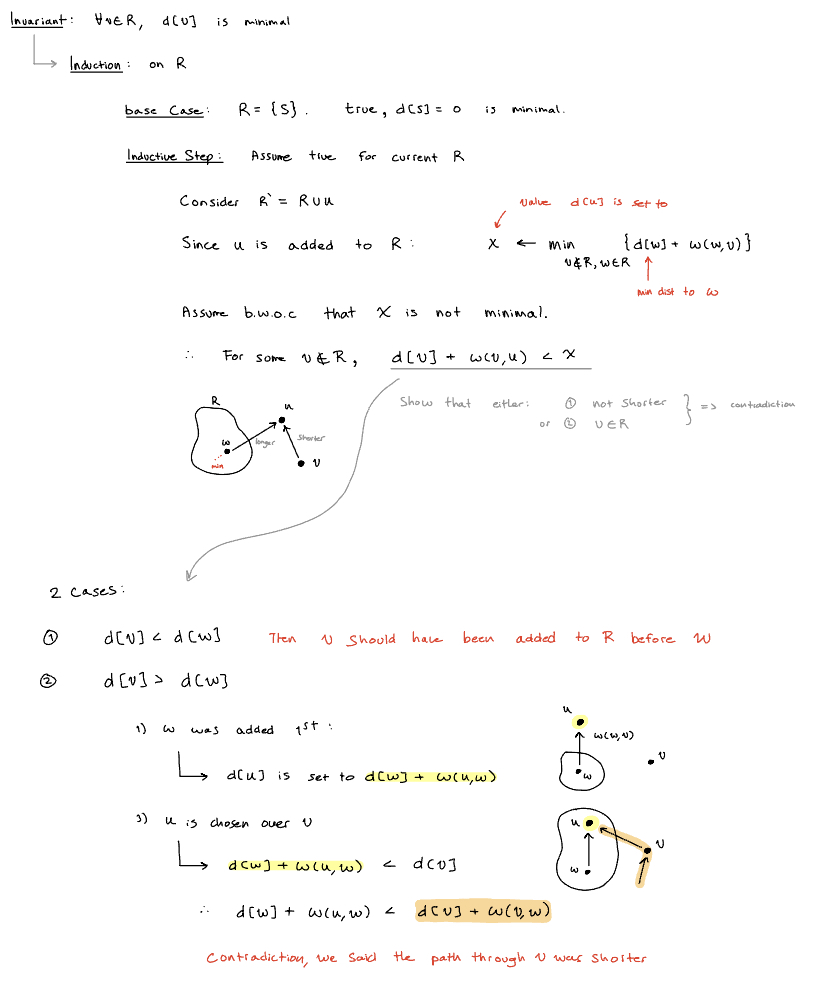 Invariant: ∀v∈R, d[v] is minimal
Induction: on R
base Case: R = {S}. true, d[S] = 0 is minimal.
Inductive Step: Assume true for current R
Consider R` = R ∪ u
value d[u] is set to
Since u is added to R: x ← min {d[w] + w(w,v)}
v∉R, w∈R
min dist to w
Assume b.w.o.c that x is not minimal.
∴ For some v∉R, d[v] + w(v,u) < x
Show that either: ① not shorter } => contradiction
or ② v∈R
R
u
w
longer
shorter
min
v
2 Cases:
① d[v] < d[w] Then v should have been added to R before w
② d[v] > d[w]
u
1) w was added 1st:
w(w,v)
v
w
d[u] is set to d[w] + w(u,w)
3) u is chosen over v
u
v
d[w] + w(u,w) < d[v]
w
∴ d[w] + w(u,w) < d[v] + w(v,w)
Contradiction, we said the path through v was shorter